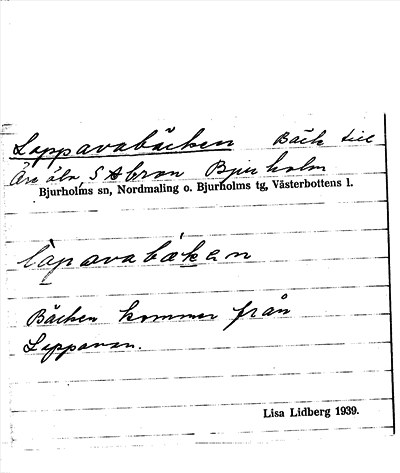 Lappavabäcken Bäck till
Öre älv, S Abron Bjurholm
Bjurholms sn, Nordmaling o. Bjurholms tg, Västerbottens l.
làpavabækɐn
Bäcken kommer från
Lappavan.
Lisa Lidberg 1939.